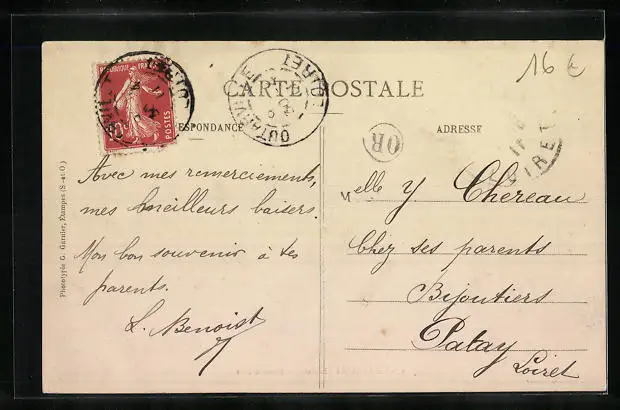 16 €
CARTE POSTALE
RÉPUBLIQUE FRANÇAISE
10c
POSTES
OUTARVILLE
LOIRET
CORRESPONDANCE
ADRESSE
OR
LOIRET
Avec mes remerciements,
mes meilleurs baisers.
Mon bon souvenir à tes
parents.
L. Benoist
Melle Y Chereau
Chez ses parents
Bijoutiers
Patay
Loiret
Phototypie G. Garnier, Étampes (S.-et-O.)